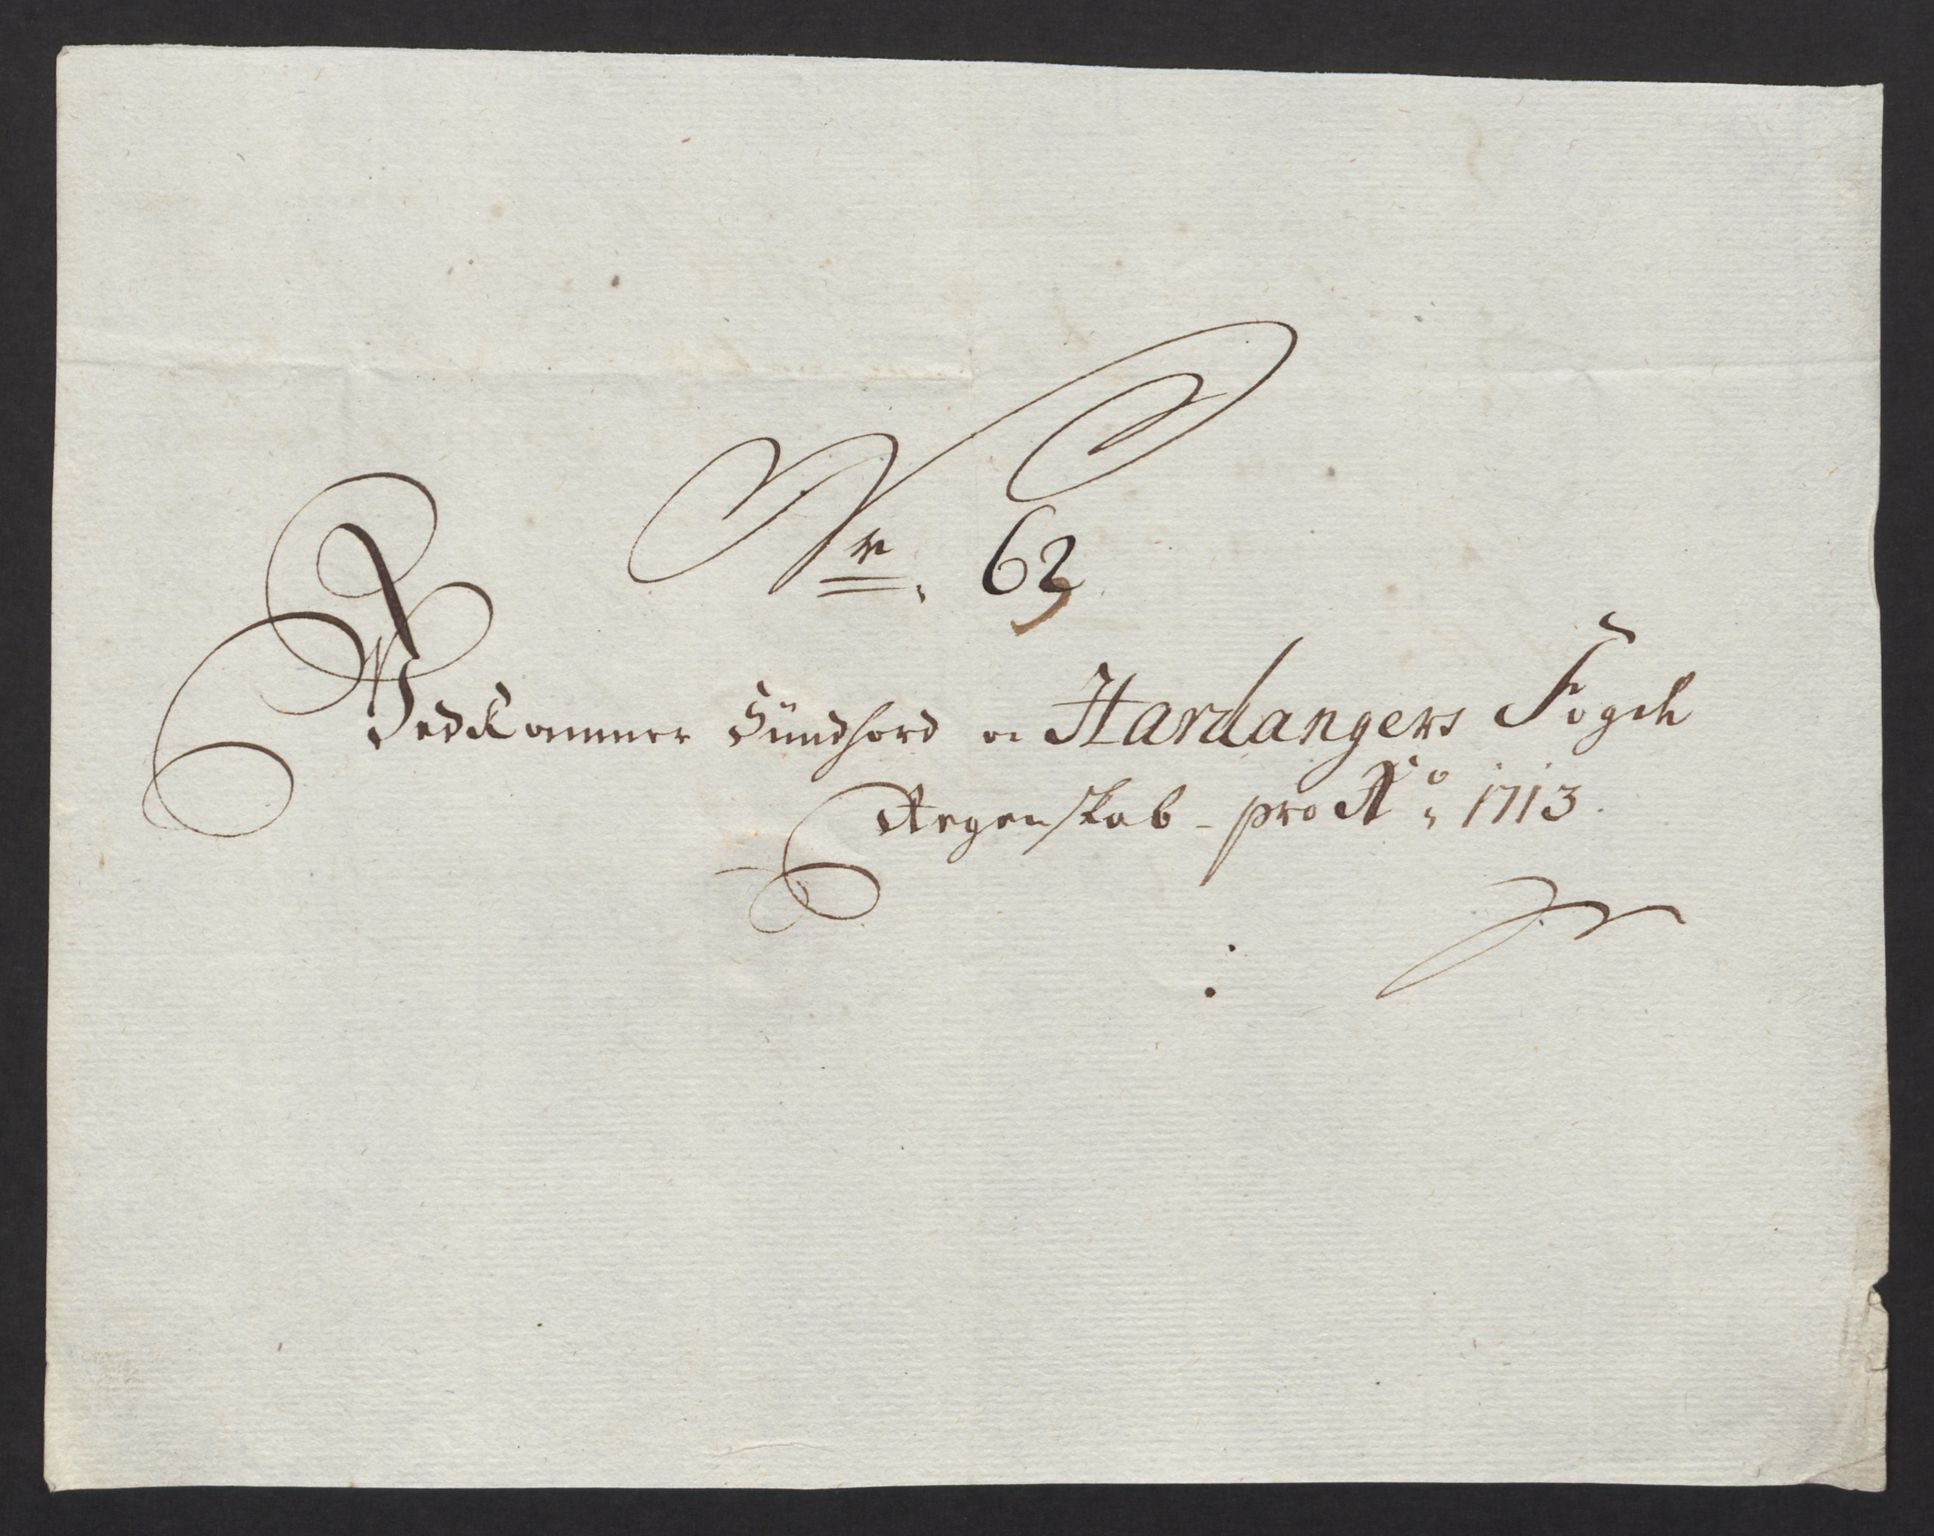 Nr. 62
Vedkommer Sündhord oc Hardangers Fogd
Regenskab - pro Ao, 1713.